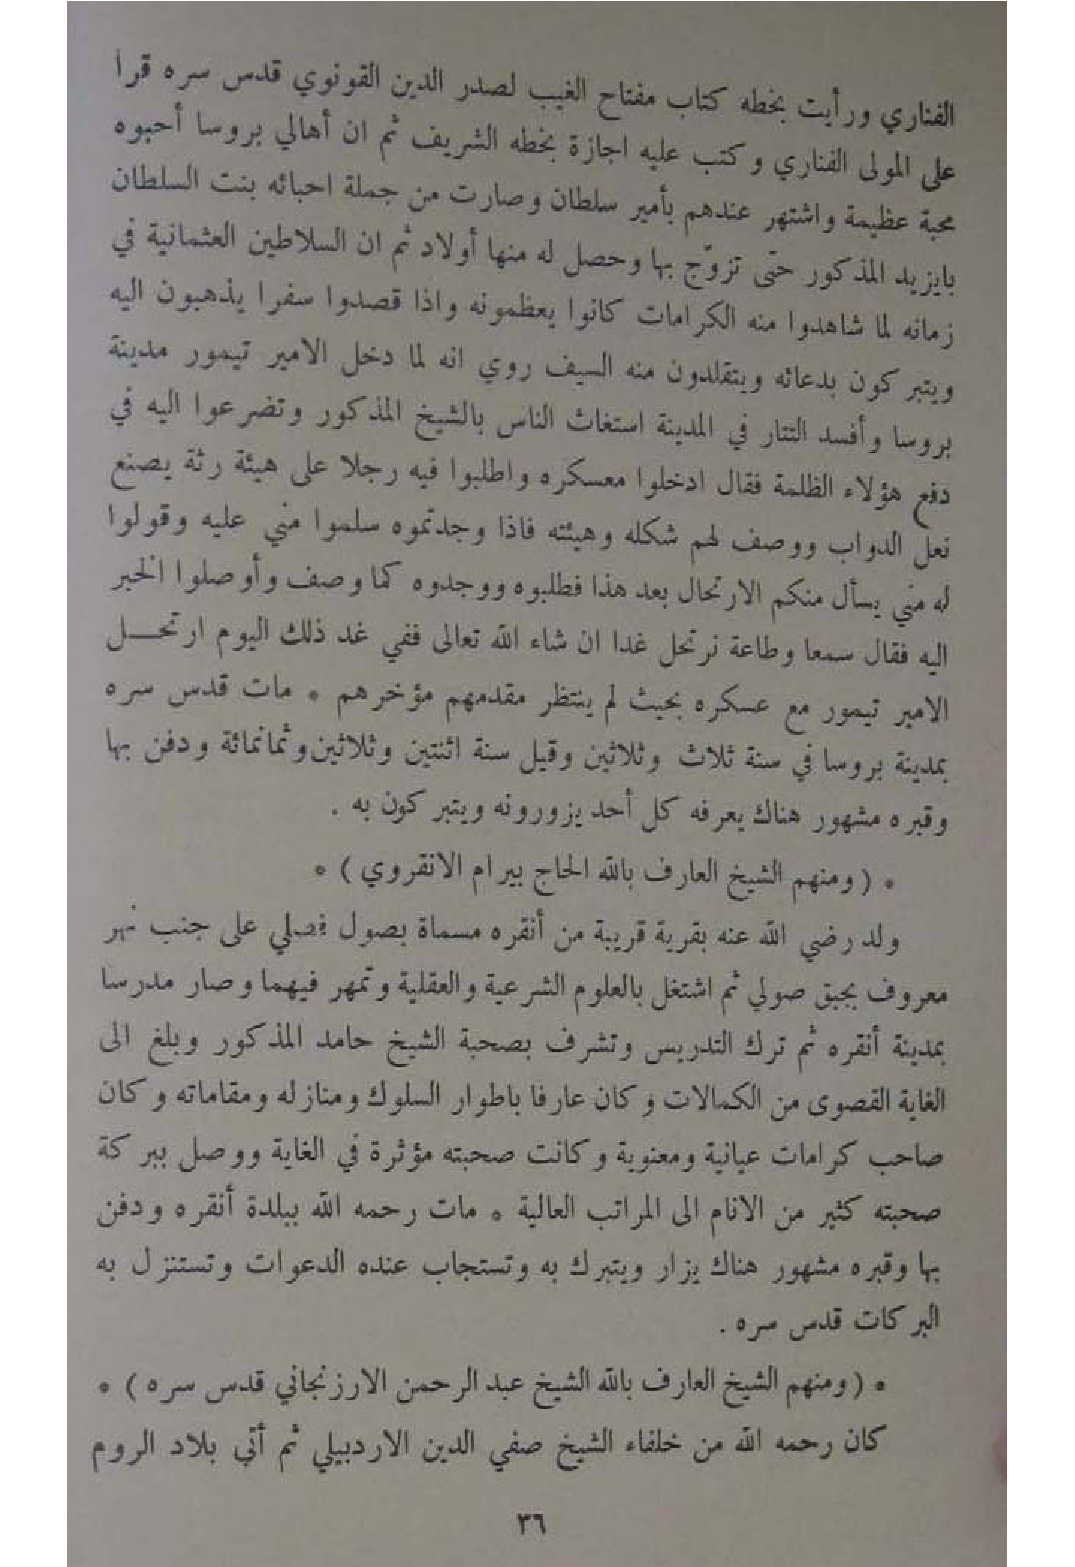 الفناري ورأيت بخطه كتاب مفتاح الغيب لصدر الدين القونوي قدس سره قرأ
على المولى الفناري وكتب عليه اجازة بخطه الشريف ثم ان أهالي بروسا أحبوه
محبة عظيمة واشتهر عندهم بأمير سلطان وصارت من جملة احبائه بنت السلطان
بايزيد المذكور حتى تزوّج بها وحصل له منها أولاد ثم ان السلاطين العثمانية في
زمانه لما شاهدوا منه الكرامات كانوا يعظمونه واذا قصدوا سفرا يذهبون اليه
ويتبركون بدعائه ويتقلدون منه السيف روي انه لما دخل الامير تيمور مدينة
بروسا وأفسد التتار في المدينة استغاث الناس بالشيخ المذكور وتضرعوا اليه في
دفع هؤلاء الظلمة فقال ادخلوا معسكره واطلبوا فيه رجلا على هيئة رثة يصنع
نعل الدواب ووصف لهم شكله وهيئته فاذا وجدتموه سلموا مني عليه وقولوا
له مني يسأل منكم الارتحال بعد هذا فطلبوه ووجدوه كما وصف وأوصلوا الخبر
اليه فقال سمعا وطاعة نرتحل غدا ان شاء الله تعالى ففي غد ذلك اليوم ارتحــل
الامير تيمور مع عسكره بحيث لم ينتظر مقدمهم مؤخرهم * مات قدس سره
بمدينة بروسا في سنة ثلاث وثلاثين وقيل سنة اثنتين وثلاثين وثمانمائة ودفن بها
وقبره مشهور هناك يعرفه كل أحد يزورونه ويتبركون به .
* ( ومنهم الشيخ العارف بالله الحاج بيرام الانقروي ) *
ولد رضي الله عنه بقرية قريبة من أنقره مسماة بصول فصلي على جنب نهر
معروف بجبق صولي ثم اشتغل بالعلوم الشرعية والعقلية وتمهر فيهما وصار مدرسا
بمدينة أنقره ثم ترك التدريس وتشرف بصحبة الشيخ حامد المذكور وبلغ الى
الغاية القصوى من الكمالات وكان عارفا باطوار السلوك ومنازله ومقاماته وكان
صاحب كرامات عيانية ومعنوية وكانت صحبته مؤثرة في الغاية ووصل ببركة
صحبته كثير من الانام الى المراتب العالية * مات رحمه الله ببلدة أنقره ودفن
بها وقبره مشهور هناك يزار ويتبرك به وتستجاب عنده الدعوات وتستنزل به
البركات قدس سره .
* ( ومنهم الشيخ العارف بالله الشيخ عبد الرحمن الارزنجاني قدس سره ) *
كان رحمه الله من خلفاء الشيخ صفي الدين الاردبيلي ثم أتى بلاد الروم
٣٦